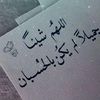 اللهم شيئًا
جميلًا لم يكن بالحسبان